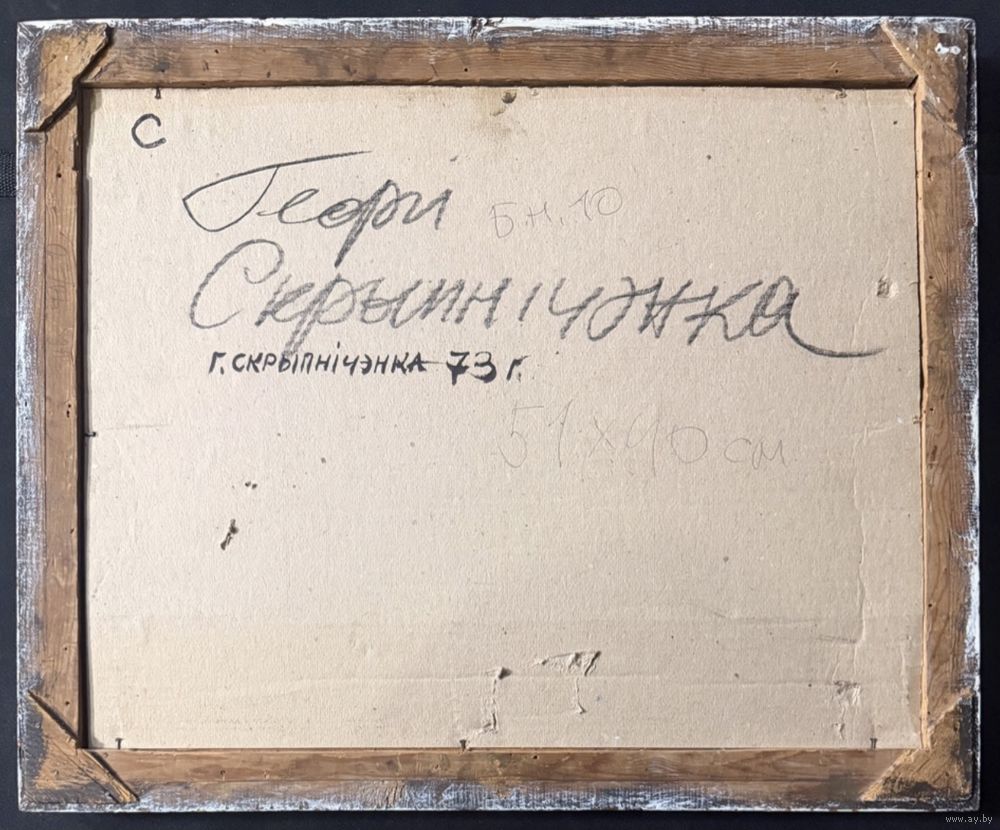 С
Георгі
Б.Н. 10
Скрыпнічэнка
Г. СКРЫПНІЧЭНКА 73 г.
51 х 40 см
www.ay.by